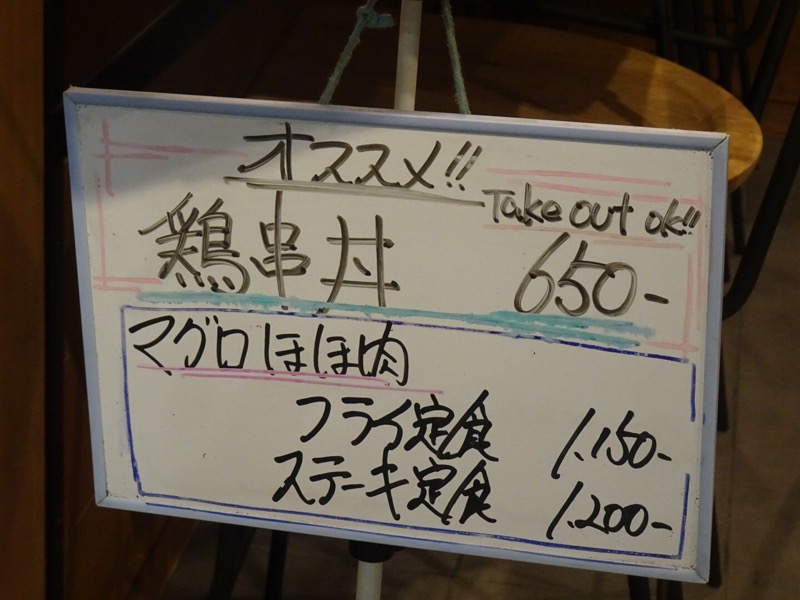 オススメ!!
Take out ok!!
鶏串丼 650-
マグロほほ肉
フライ定食 1.150-
ステーキ定食 1.200-